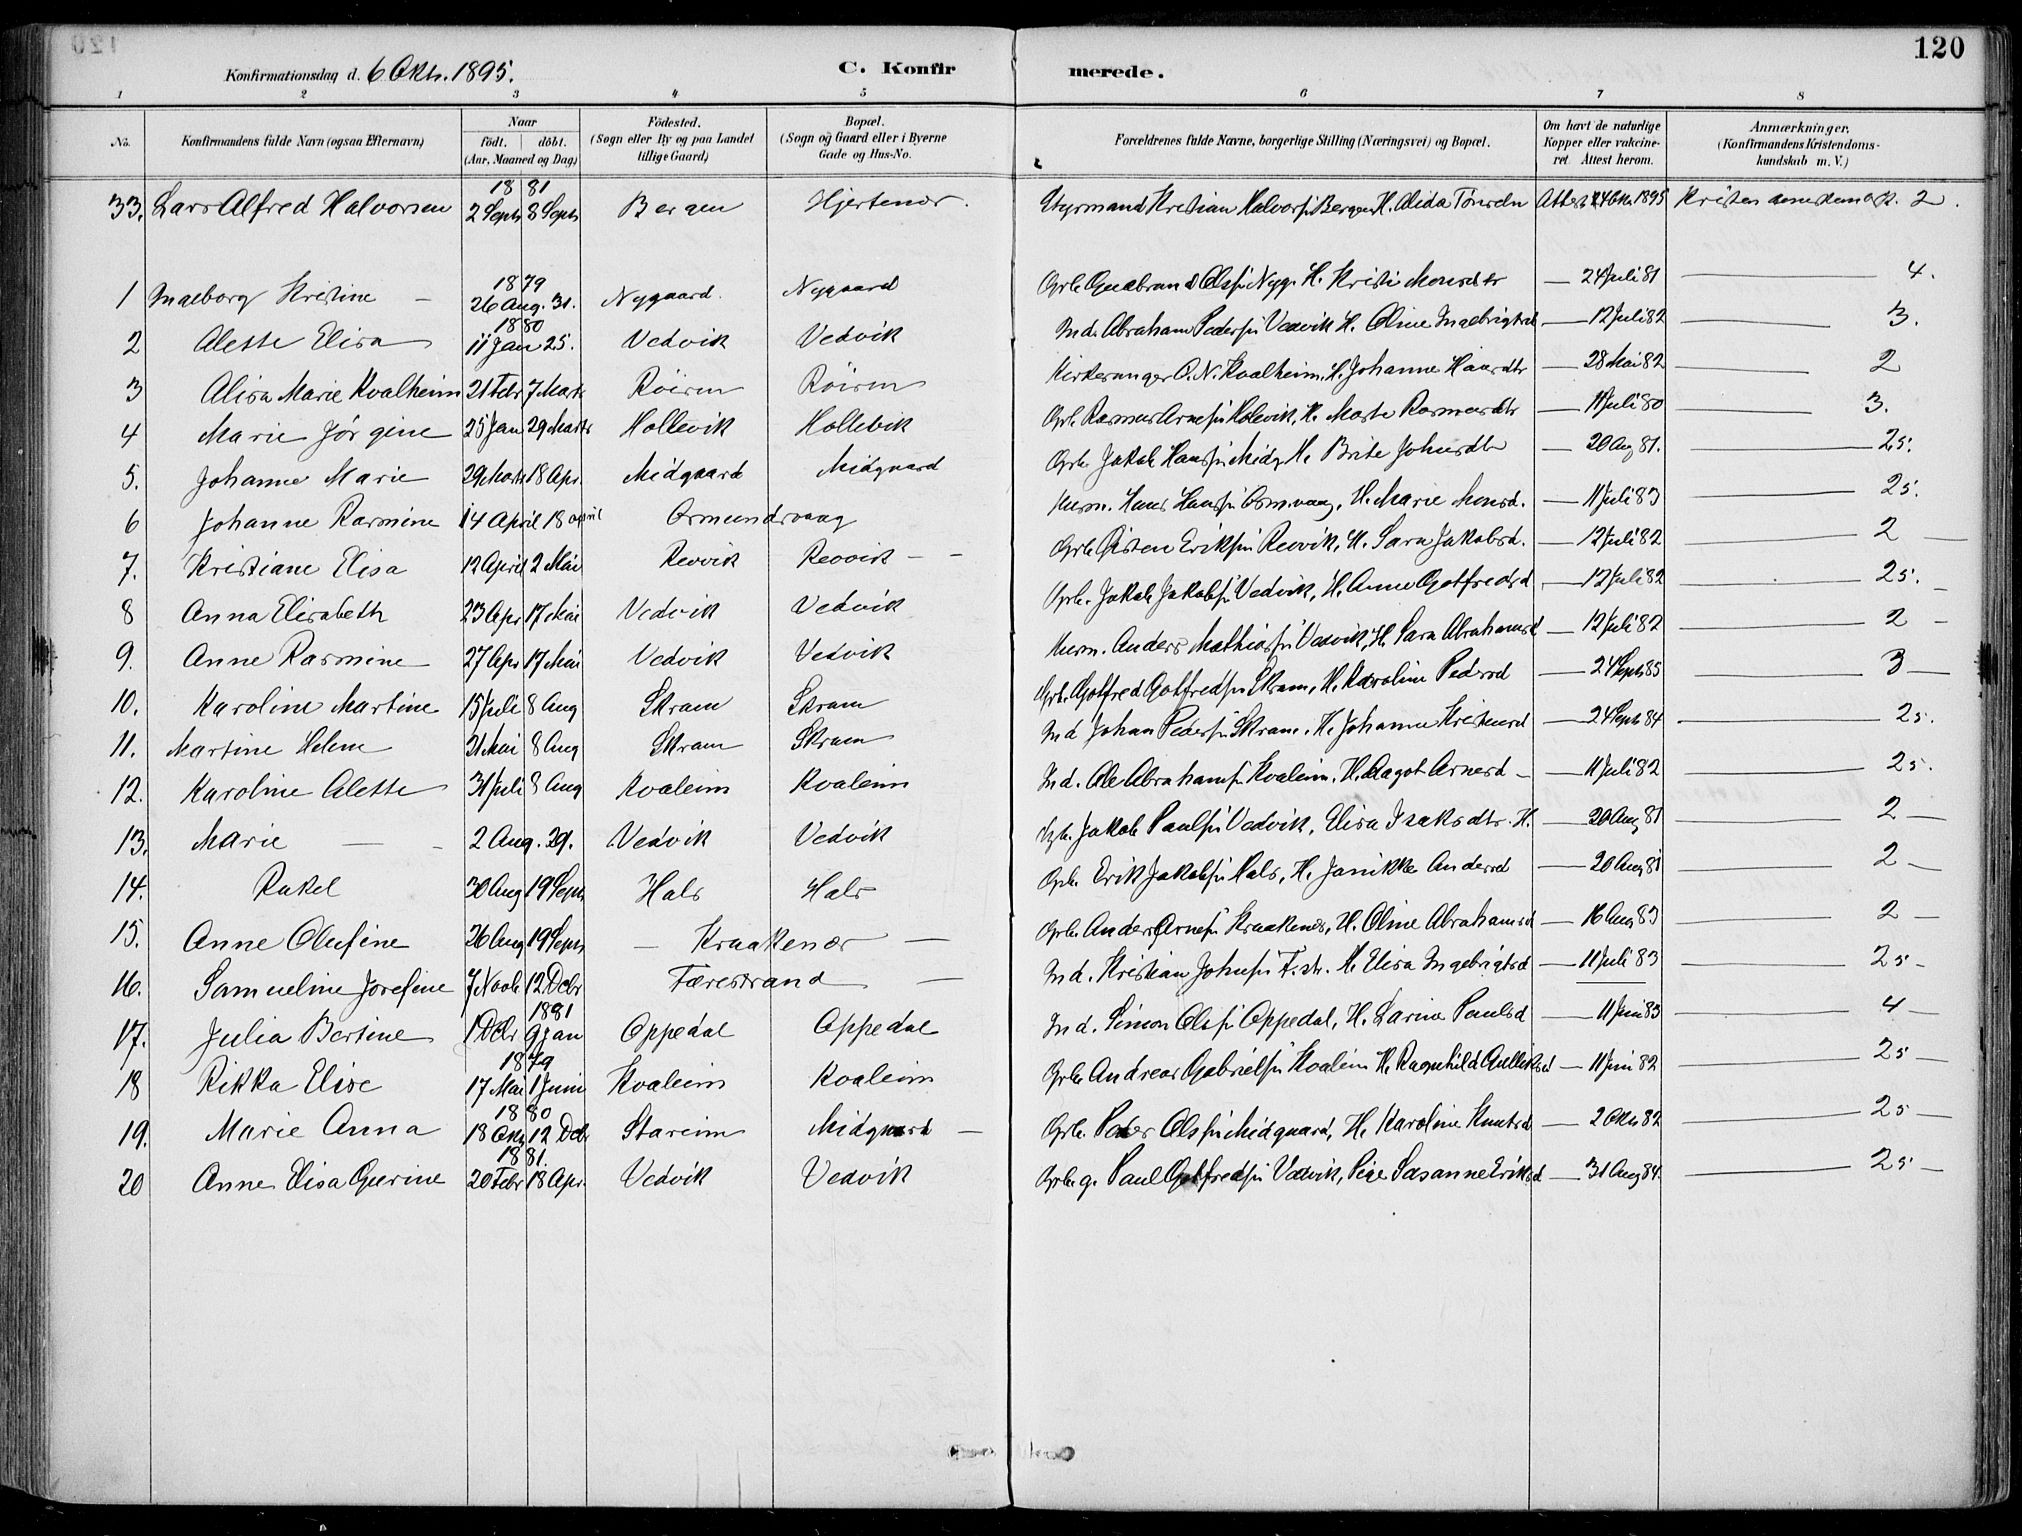 120
Konfirmationsdag d. 6 Oktr. 1895. C. Konfirmerede.
1 2 3 4 5 6 7 8
No. Konfirmandens fulde Navn (ogsaa Efternavn) Naar födt. döbt. (Aar, Maaned og Dag) Födested. (Sogn eller By og paa Landet tillige Gaard) Bopæl. (Sogn og Gaard eller i Byerne Gade og Hus-No. Forældrenes fulde Navne, borgerlige Stilling (Næringsvei) og Bopæl. Om havt de naturlige Kopper eller vakcineret Attest herom. Anmærkninger. (Konfirmandens Kristendomskundskab m. V.)
1881
33. Lars Alfred Halvorsen 2 Septr 8 Septr Bergen Hjertenær. Styrmand Kristian Halvors. Bergen H. Alida Attest 1895 2.
1879
1 Ingeborg Kristine — 26 Aug. 31. Nygaard. Nygaard Grbr. Gudbrand Ols. Nyg. H. Kristi Monsdtr — 24 Juli 81 — 4.
1880
2 Alette Elisa 11 Jan 25. Vedvik Vedvik Ind. Abraham Peders. Vedvik H. Oline — 12 Juli 82 — 3.
3 Alisa Marie Kvalheim 21 Febr 7 Marts Röiren Röiren Kirkesanger O. N. Kvalheim, H. Johanne — 28 Mai 82 — 2
4 Marie Jörgine 25 Jan 29 Marts Hollevik Hollevik Grbr. Rasmus Arnes. Holevik, H. Marte Rasmusdtr — 11 Juli 80 — 3.
5. Johanne Marie 29 Marts 18 Apr. Midgaard Midgaard Grbr. Jakob Hans. Midg. H. Brite Johnsdtr — 20 Aug 81. — 25.
6 Johanne Rasmine 14 April 18 april Ormundsvaag Hans Hans. Ormsvaag, H. Marie Monsd. — 11 Juli 83 — 25.
7. Kristiane Elisa 12 April 2 Mai Revvik Revvik — — Grbr Östen Eriks. Revvik, H. Sara Jakobsd. — 12 Juli 82 — 2
8 Anna Elisabeth 23 Apr 17 Mai Vedvik Vedvik Grbr. Jakob Jakobs. Vedvik, H. Anne Gotfredsd — 12 Juli 82 — 25.
9. Anne Rasmine 27 Apr 17 Mai Vedvik Vedvik Anders Mathias. Vedvik, H. Sara Abrahamsd — 12 Juli 82 — 2 —
10. Karoline Martine 15 Juli 8 Aug Skram Skram Grbr. Gotfred Gotfreds. Skram, H. Karoline Pedersd — 24 Septr 85 — 3 —
11. Martine Helene 21 Mai 8 Aug Skram Skram Ind Johan Peders. Skram, H. Johanne Kristensd — 24 Septr 84 — 25.
12. Karoline Alette 31 Juli 8 Aug Kvaleim Kvaleim Ind. Ole Abrahams. Kvaleim, H. Aagot Arnesd — — 11 Juli 82 — 25.
13. Marie — - 2 Aug. 29. Vedvik Vedvik Jakob Pauls. Vedvik, Elisa Isaksdtr. H. — 20 Aug 81 — 2 —
14. Rakel 30 Aug 19 Septr Hals Hals Grbr. Erik Jakobs. Hals, H. Janikke Andersd — 20 Aug 81 — 2 —
15. Anne Olufine 26 Aug 19 Septr — Kraakenær — Grbr. Anders Arnes. Kraakenes, H. Oline Abrahamsd — 16 Aug 83 — 2 —
16. Samueline Josefine 7 Novbr 12 Debr Færestrand — Ind. Kristian Johns. F.str. H. Elisa Ingebrigtsd — 11 Juli 83 — 25 -
1881
17. Julia Bertine 1 Debr 9 Jan Oppedal Oppedal Ind. Simon Ols. Oppedal, H. Larine Paulsd — 11 Juni 83 — 4 —
1879
18 Rikka Elise 17 Mai 1 Juni Kvaleim Kvaleim Grbr Andreas Gabriels. Kvaleim H. Ragnhild — 11 Juni 82 — 25 —
1880
19. Marie Anna 18 Okt 12 Debr Stareim Midgaard — Grbr. Peder Ols. Midgaard, H. Karoline Knutsd — 2 Oktr 82 — 25 —
1881.
20 Anne Elisa Gurine 20 Febr 18 Apr. Vedvik Vedvik Grbr. g. Paul Gotfreds. Vedvik, Pige Susanne Eriksd — 31 Aug 84. — 25 —